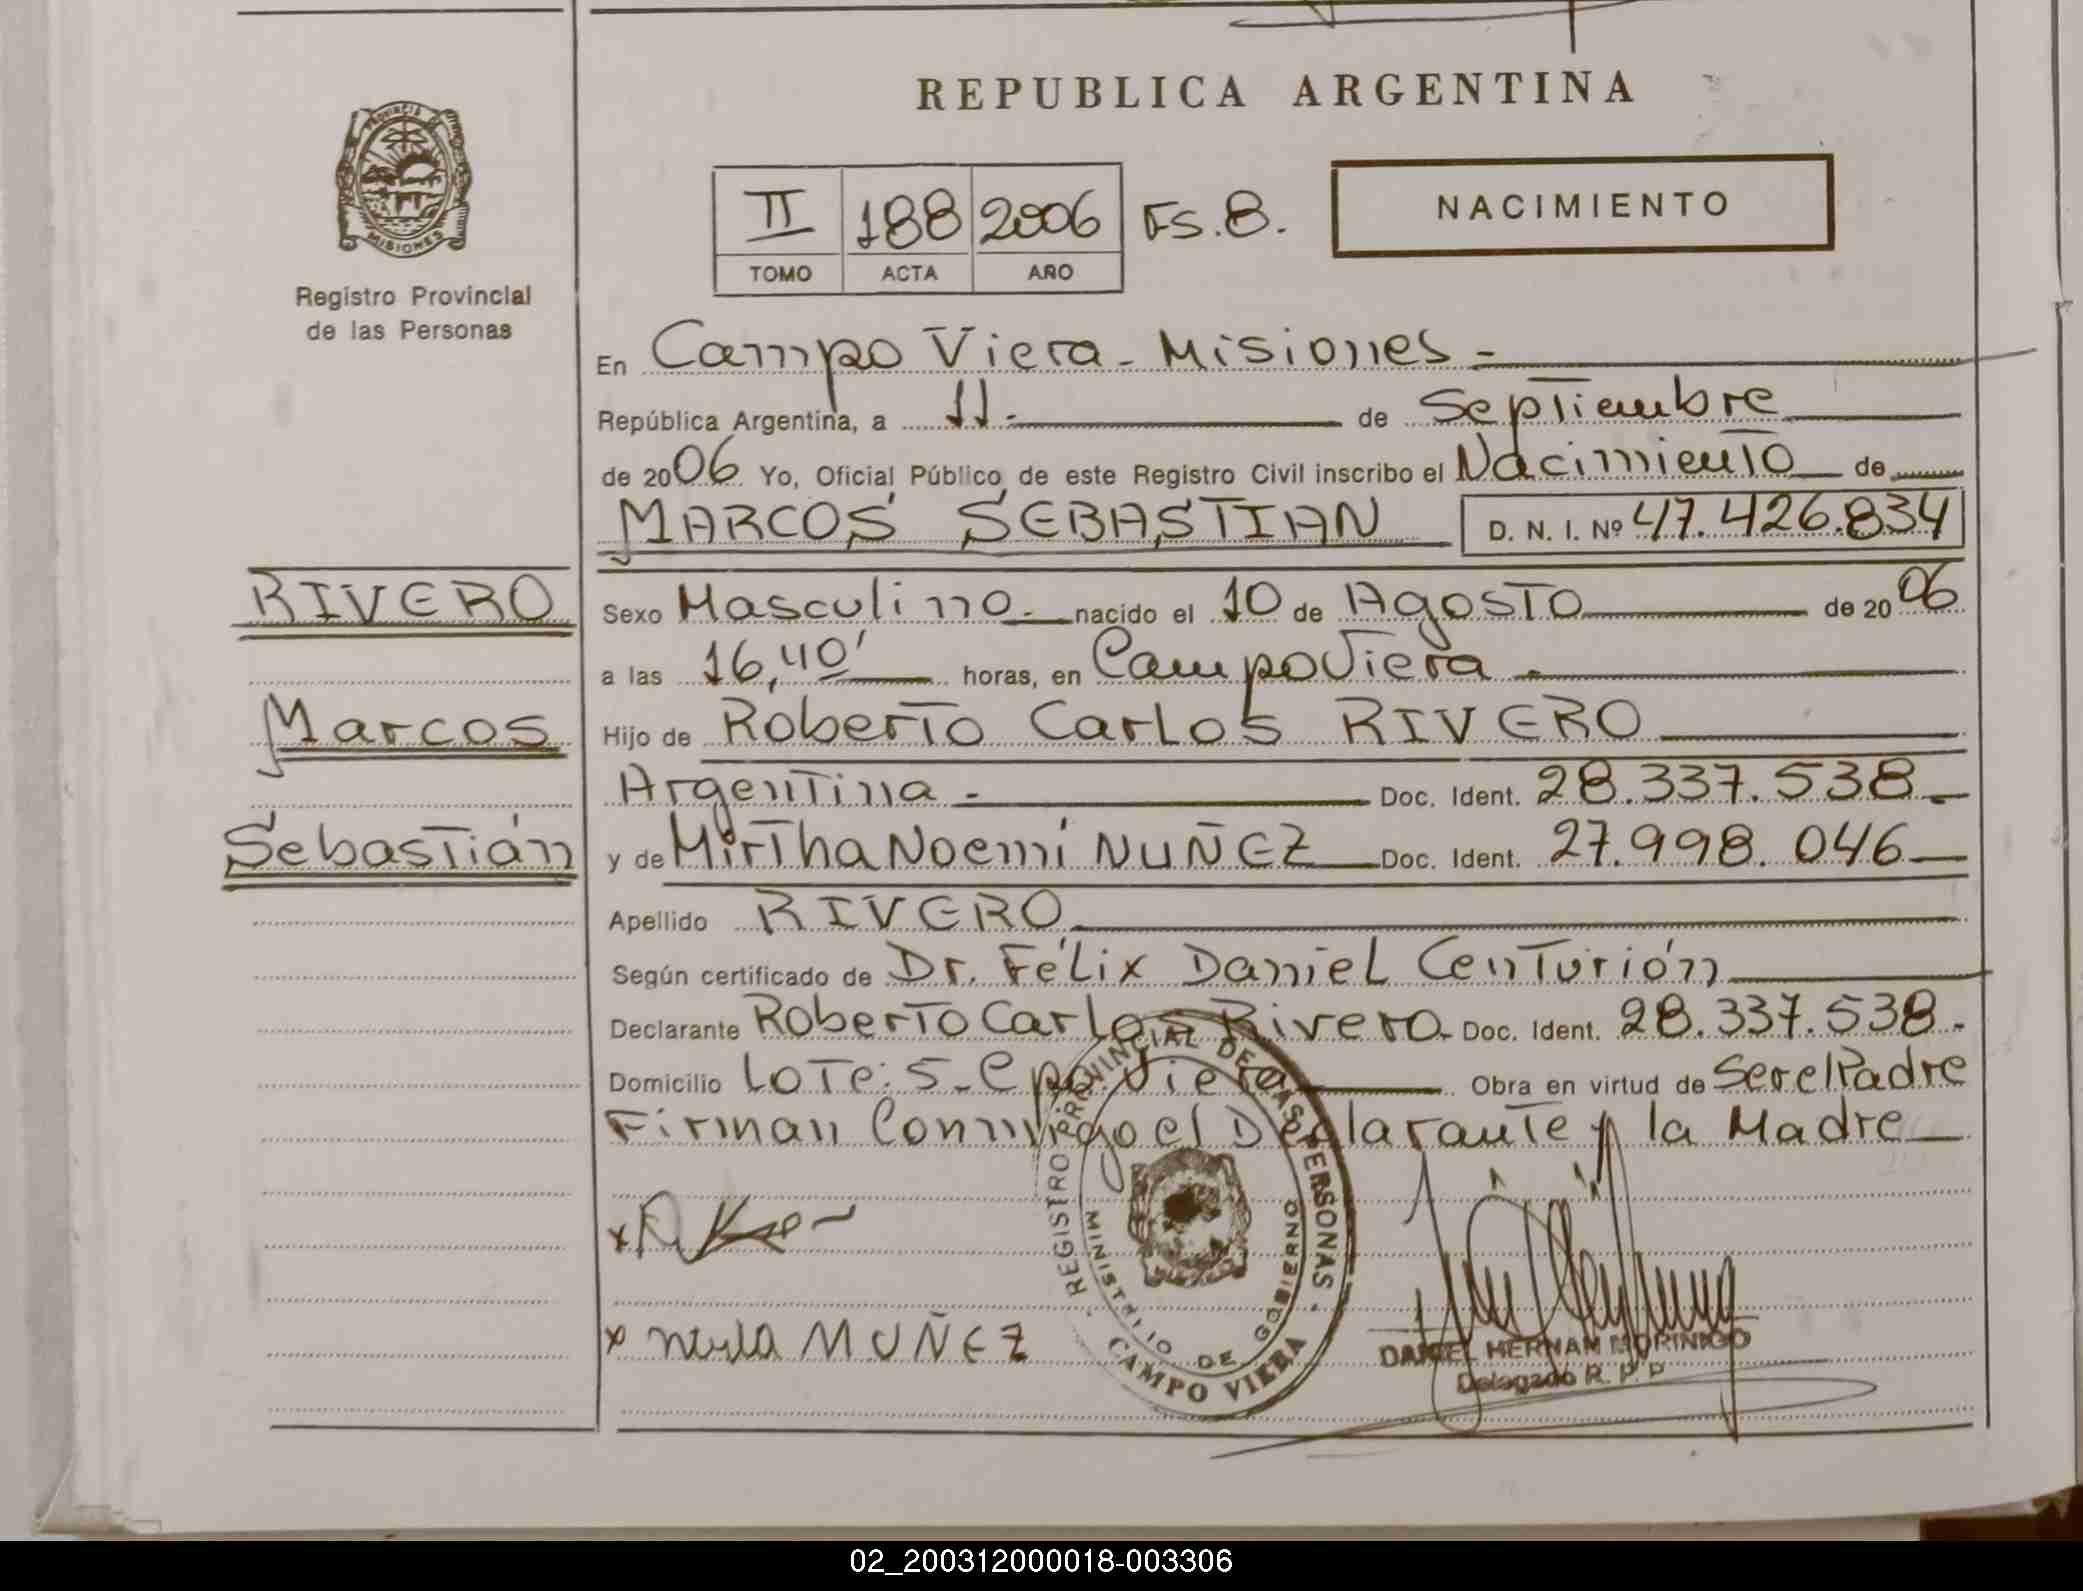 REPUBLICA ARGENTINA
PROVINCIA DE
MISIONES
Registro Provincial
de las Personas
II 188 2006 Fs. 8.
TOMO ACTA AÑO
NACIMIENTO
En Campo Viera - Misiones -
República Argentina, a 11.- de Septiembre
de 2006 Yo, Oficial Público de este Registro Civil inscribo el Nacimiento de
MARCOS SEBASTIAN D. N. I. Nº 47.426.834
RIVERO
Marcos
Sebastián
Sexo Masculino.- nacido el 10 de Agosto de 2006
a las 16,40' horas, en Campo Viera.
Hijo de Roberto Carlos RIVERO
Argentina.- Doc. Ident. 28.337.538.-
y de Mirtha Noemí NUÑEZ Doc. Ident. 27.998.046
Apellido RIVERO
Según certificado de Dr. Félix Daniel Centurión
Declarante Roberto Carlos Rivero. Doc. Ident. 28.337.538.-
Domicilio Lote: 5 - Cpo. Viera Obra en virtud de Ser el Padre
Firman Conmigo el Declarante y la Madre
REGISTRO PROVINCIAL DE LAS PERSONAS
MINISTERIO DE GOBIERNO
CAMPO VIERA
x
x NUÑEZ
DANIEL HERNAN MORINIGO
Delegado R. P. P
02_200312000018-003306